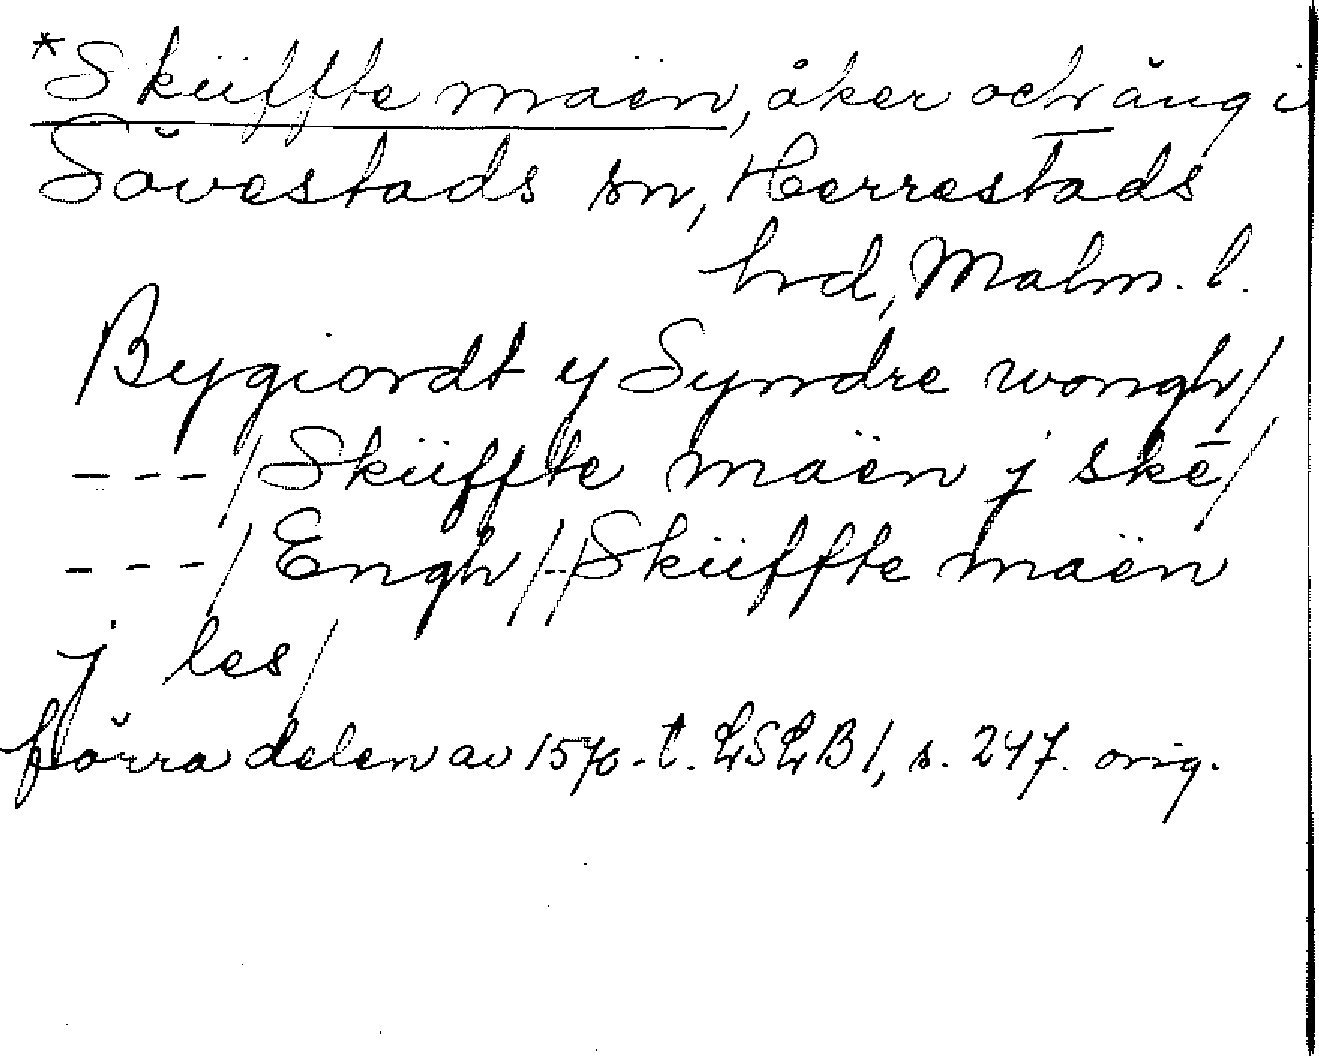 *Sküffte maën, åker och äng i
Sövestads sn, Herrestads
hrd, Malm. l.
Bygiordt y Syndre wongh/
---/Sküffte maën j skē/
---/Engh/-/Sküffte maën
j les/
förra delen av 1570-t. LSLB1, s. 247. orig.